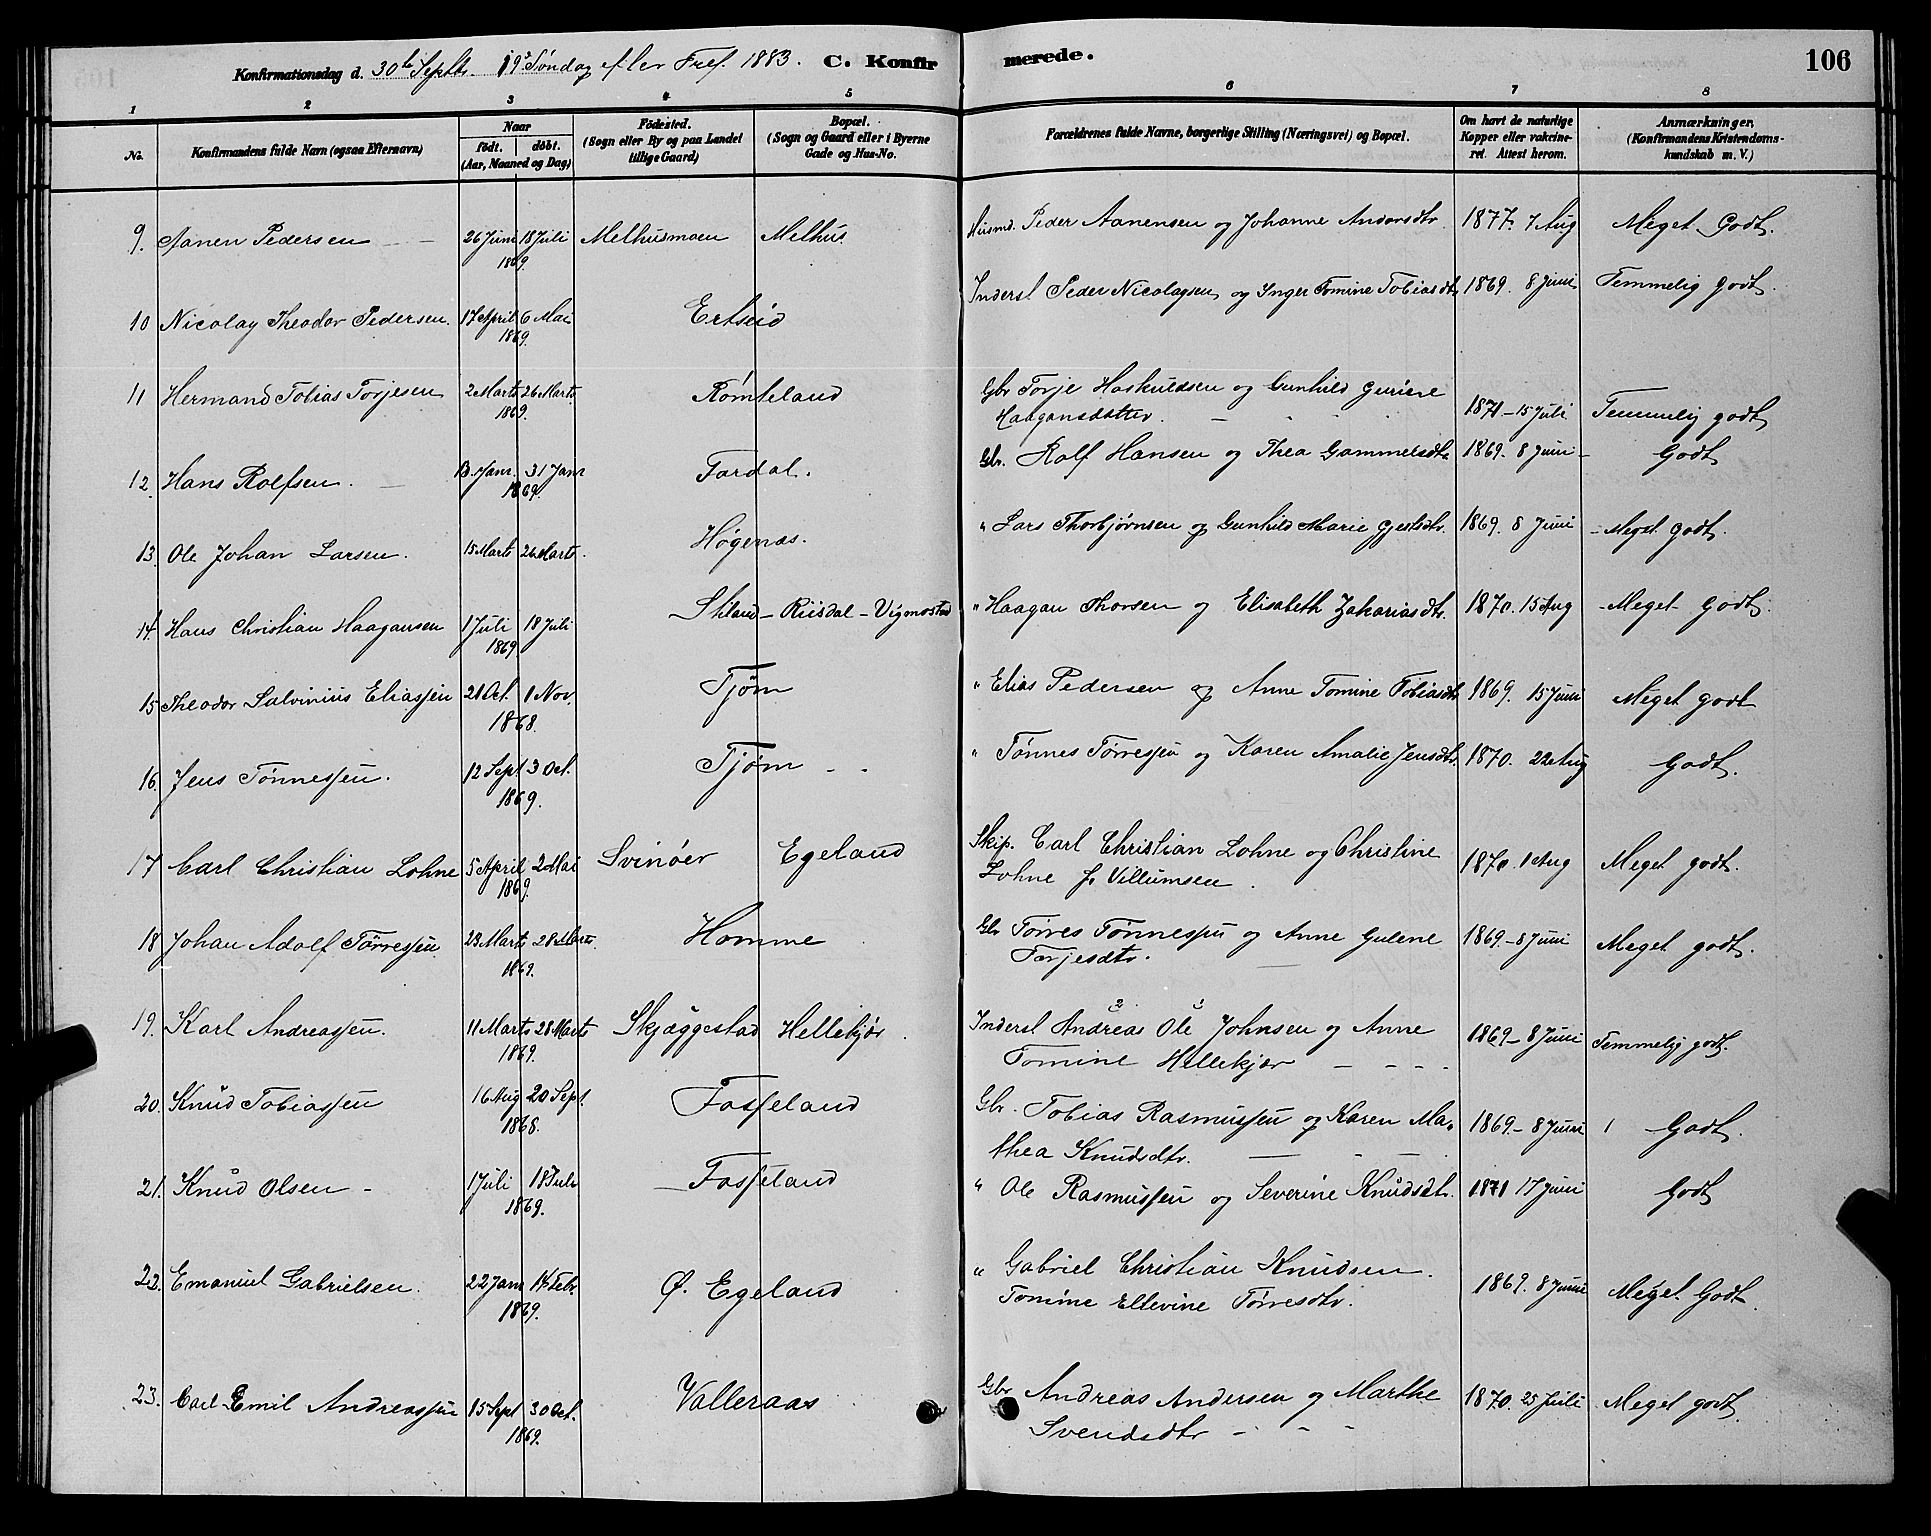 Konfirmationsdag d. 30te Septbr. 19de Søndag efter Tref. 1883. C. Konfirmerede. 106
1 2 3 4 5 6 7 8
No. Konfirmandens fulde Navn (ogsaa Efternavn) Naar födt. döbt. (Aar, Maaned og Dag) Födested. (Sogn eller By og paa Landet tillige Gaard) Bopæl. (Sogn og Gaard eller i Byerne Gade og Hus-No. Forældrenes fulde Navne, borgerlige Stilling (Næringsvei) og Bopæl. Om havt de naturlige Kopper eller vakcineret. Attest herom. Anmærkninger, (Konfirmandens Kristendomskundskab m. V.)
9. Aanen Pedersen 26 Juni 18 Juli 1869. Melhusmoen Melhus. Husmd. Peder Aanensen og Johanne Andersdtr 1877. 7 Aug Meget Godt.
10 Nicolay Theodor Pedersen. 17 April 6 Mai 1869. Ertseid Inderst Peder Nicolaysen og Inger Tomine Tobiasdtr 1869. 8 Juni Temmelig godt.
11 Hermand Tobias Torjesen 2 Marts 26 Marts 1869. Römteland Gbr Torje Haskuldsen og Gunhild Guriene
Haagansdatter. 1871 - 15 Juli Temmelig godt
12. Hans Rolfsen. 13. Janr. 31 Janr 1869. Fardal. Gbr. Rolf Hansen og Thea Gammelsdtr 1869. 8 Juni - Godt
13. Ole Johan Larsen. 15 Marts 26 Marts. Högenæs. " Lars Thorbjørnsen og Gunhild Marie Gjertsdtr. 1869. 8 Juni - Meget godt.
14. Hans Christian Haagansen 1 Juli 18 Juli 1869 Skland - Riisdal - Vigmostad " Haagan Thorsen og Elisabeth Zakariasdtr. 1870. 15 Aug - Meget Godt.
15. Theodor Salvinius Eliassen 21 Oct. 1 Nov. 1868. Tjøm " Elias Pedersen og Anne Tomine Tobiasdtr 1869. 15 Juni Meget godt
16. Jens Tönnessen. 12 Sept 3 Oct. 1869. Tjøm - - " Tönnes Törressen og Karen Amalie Jensdtr. 1870. 22 Aug Godt.
17 Carl Christian Lohne 5 April 2 Mai 1869. Svinöer Egeland Skip. Carl Christian Lohne og Christine
Lohne f. Villumsen. 1870. 1 Aug Meget godt.
18 Johan Adolf Törressen. 23 Marts 28 Marts. 1869. Homme Gbr Törres Tönnessen og Anne Gulene
Torjesdtr. 1869. - 8 Juni Meget godt.
19. Karl Andreassen. 11 Marts 28 Marts 1869. Skjæggestad Hellekjör. Inderst Andreas Ole Johnsen og Anne
Tomine Hellekjær - - - - 1869 - 8 Juni Temmelig godt.
20. Knud Tobiassen 16 Aug 20 Sept. 1868. Fosseland Gbr. Tobias Rasmussen og Karen Mathea Knudsdtr. 1869. - 8 Juni Godt.
21. Knud Olsen - 1 Juli 18 Juli 1869. - Fosseland " Ole Rasmussen og Severine Knudsdtr. 1871 17 Juni Godt
22. Emanuel Gabrielsen. 22 Janr 14 Febr 1869. Ø. Egeland " Gabriel Christian Knudsen.
Tomine Ellevine Törresdtr. 1869. 8 Juni Meget Godt.
23. Carl Emil Andreassen 15 Sept 3 Oct. 1869. Valleraas Gbr Andreas Andersen og Marthe
Svendsdtr - - - 1870. 25 Juli Meget godt.